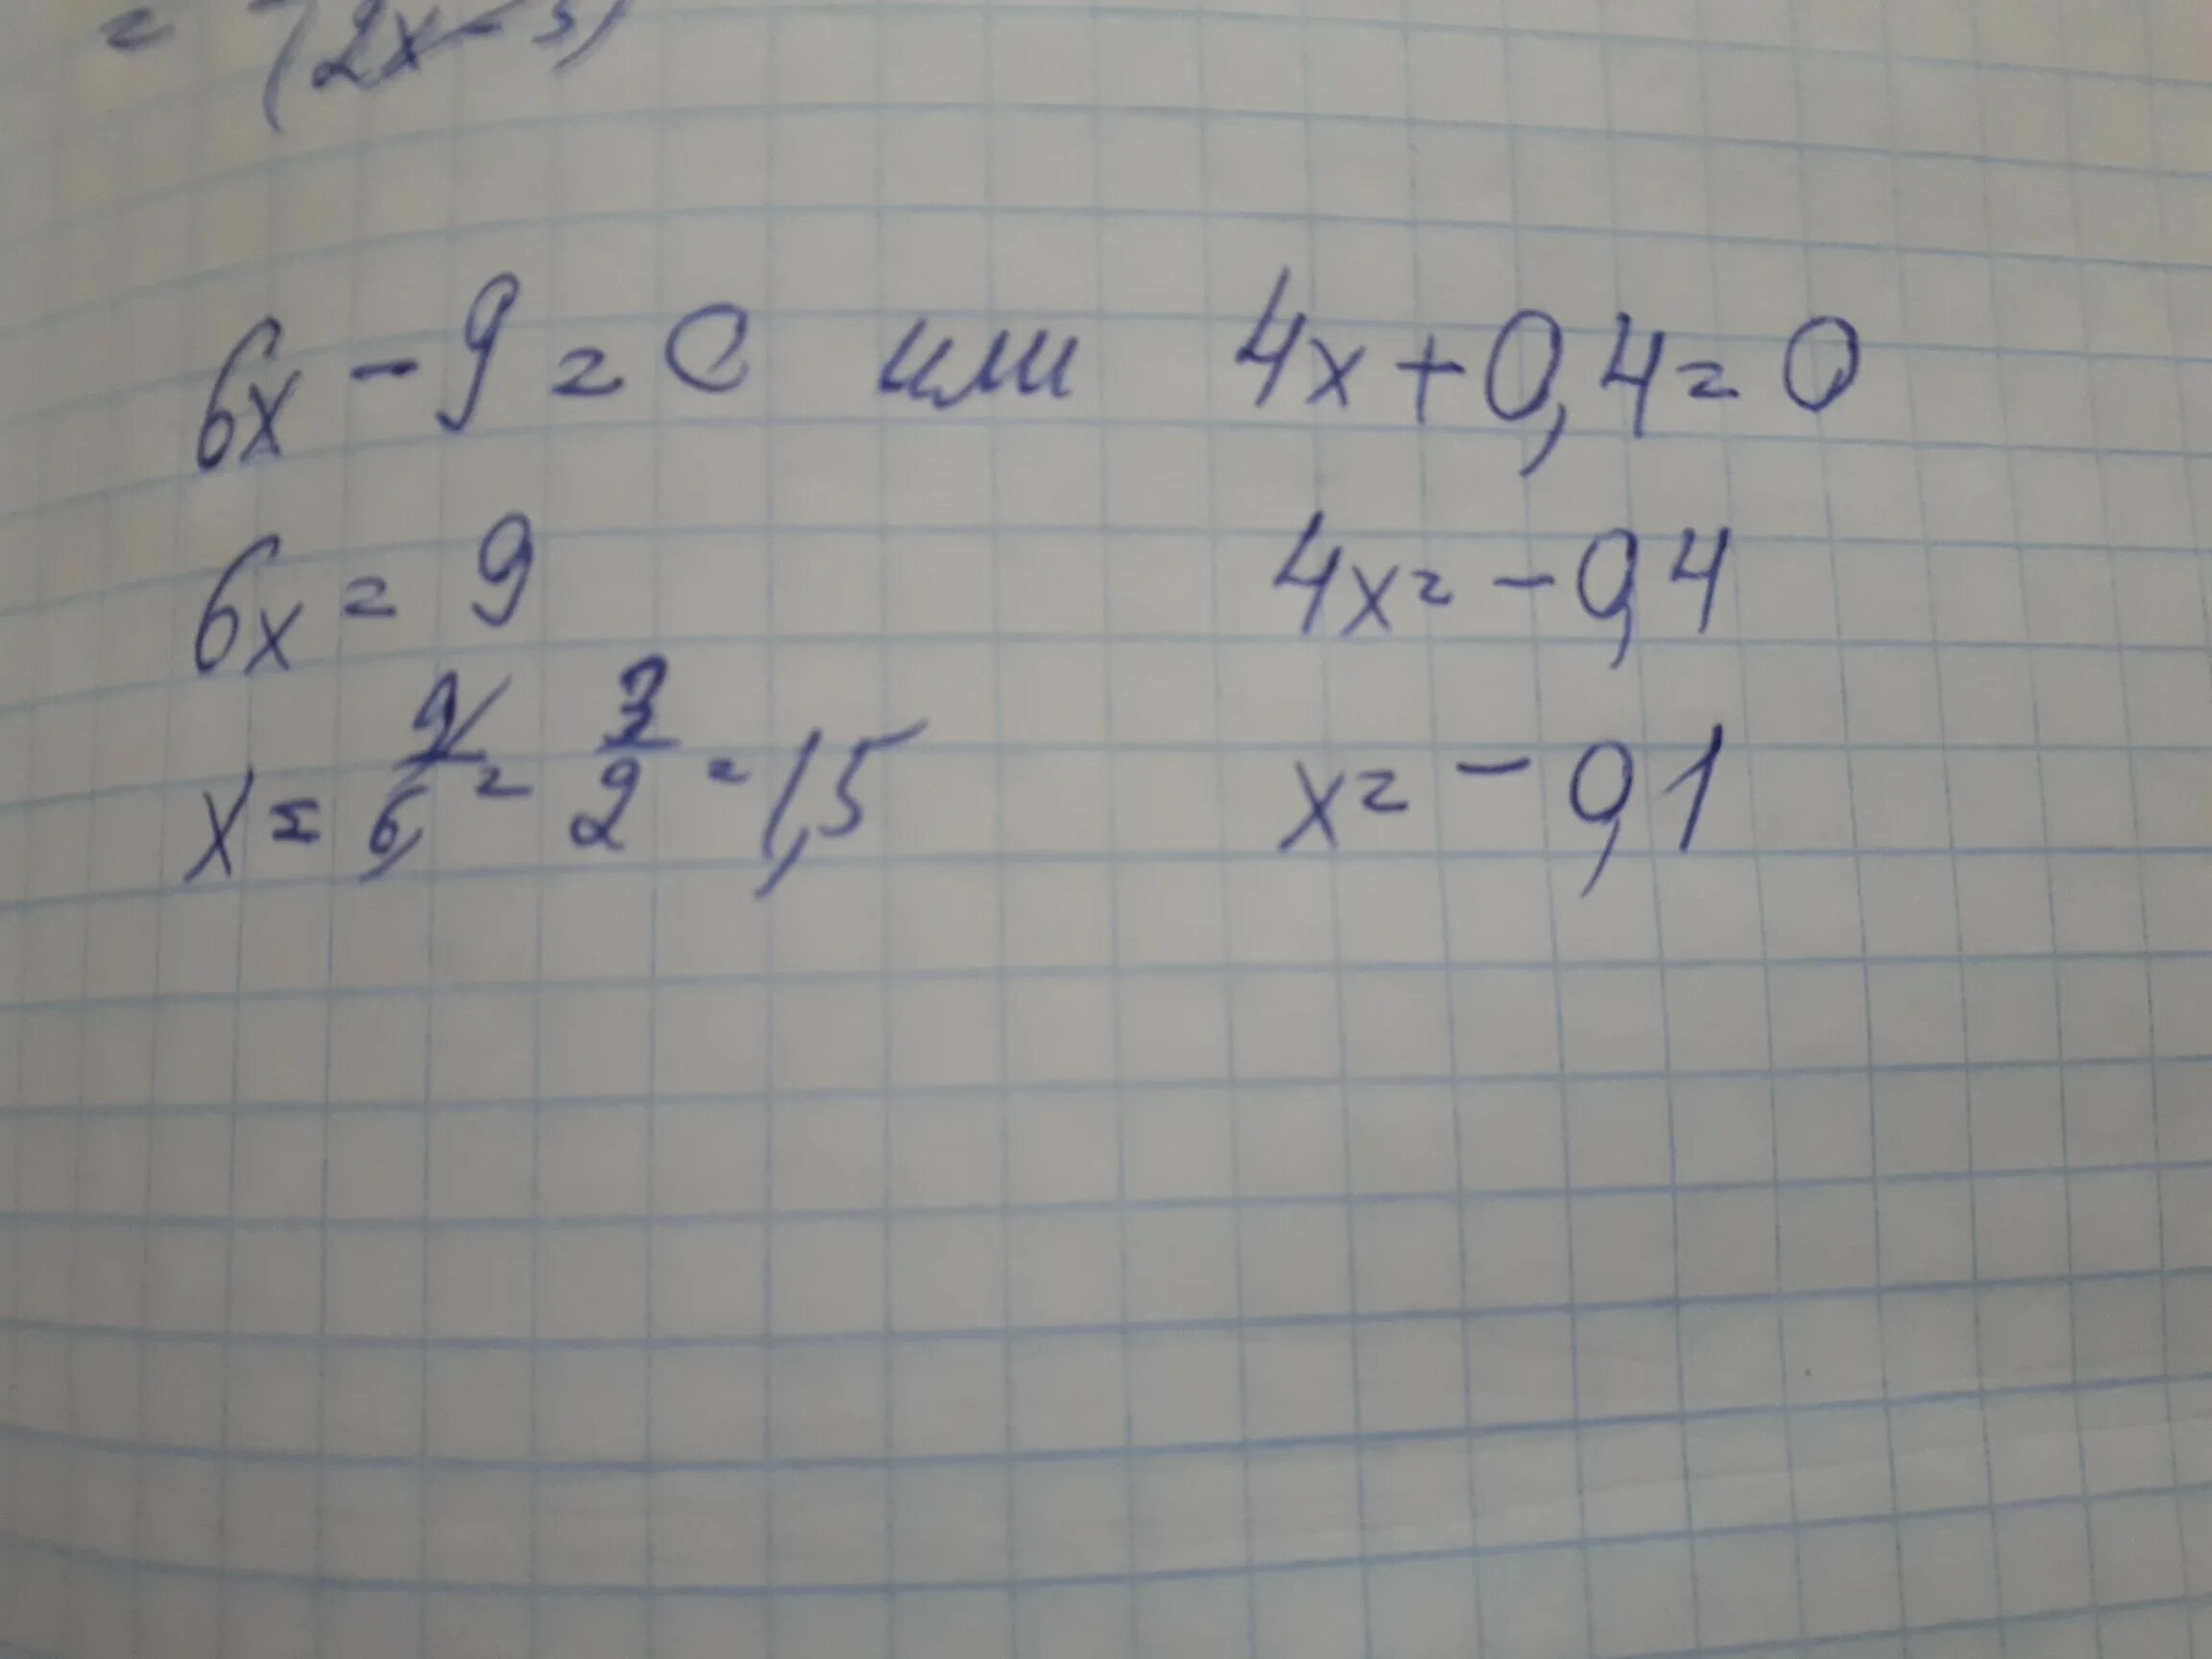 = (2x-3)
6x - 9 = 0 или 4x + 0,4 = 0
6x = 9 4x = - 0,4
x = 9/6 = 3/2 = 1,5 x = - 0,1